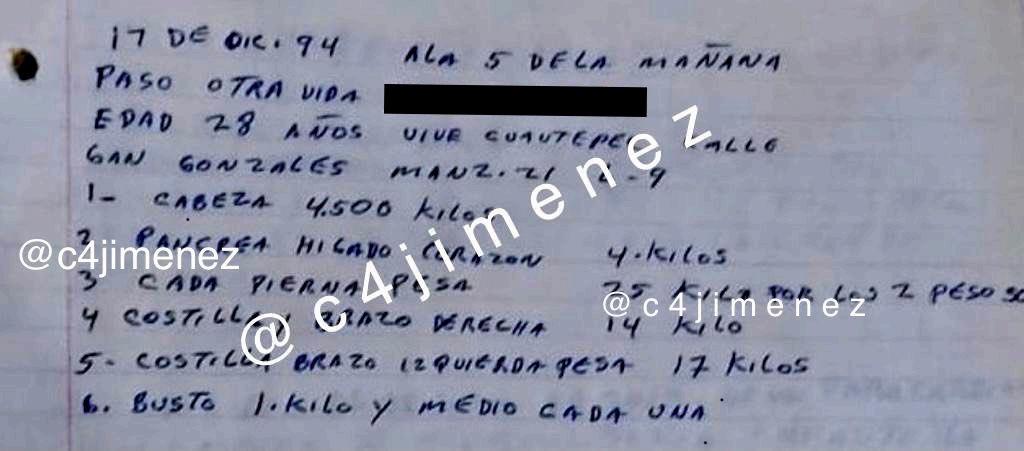 17 DE DIC. 94 ALA 5 DELA MAÑANA
PASO OTRA VIDA
EDAD 28 AÑOS VIVE CUAUTEPEC CALLE
SAN GONZALES MANZ. 21 L-9
1- CABEZA 4.500 KILOS
2 PANCREA HIGADO CORAZON 4.KILOS
@c4jimenez
3 CADA PIERNA PESA 25 KILO POR LAS 2 PESO
@c4jimenez
@c4jimenez
4 COSTILLA Y BRAZO DERECHA 14 KILO
5- COSTILLA BRAZO IZQUIERDA PESA 17 KILOS
6. BUSTO 1.KILO Y MEDIO CADA UNA